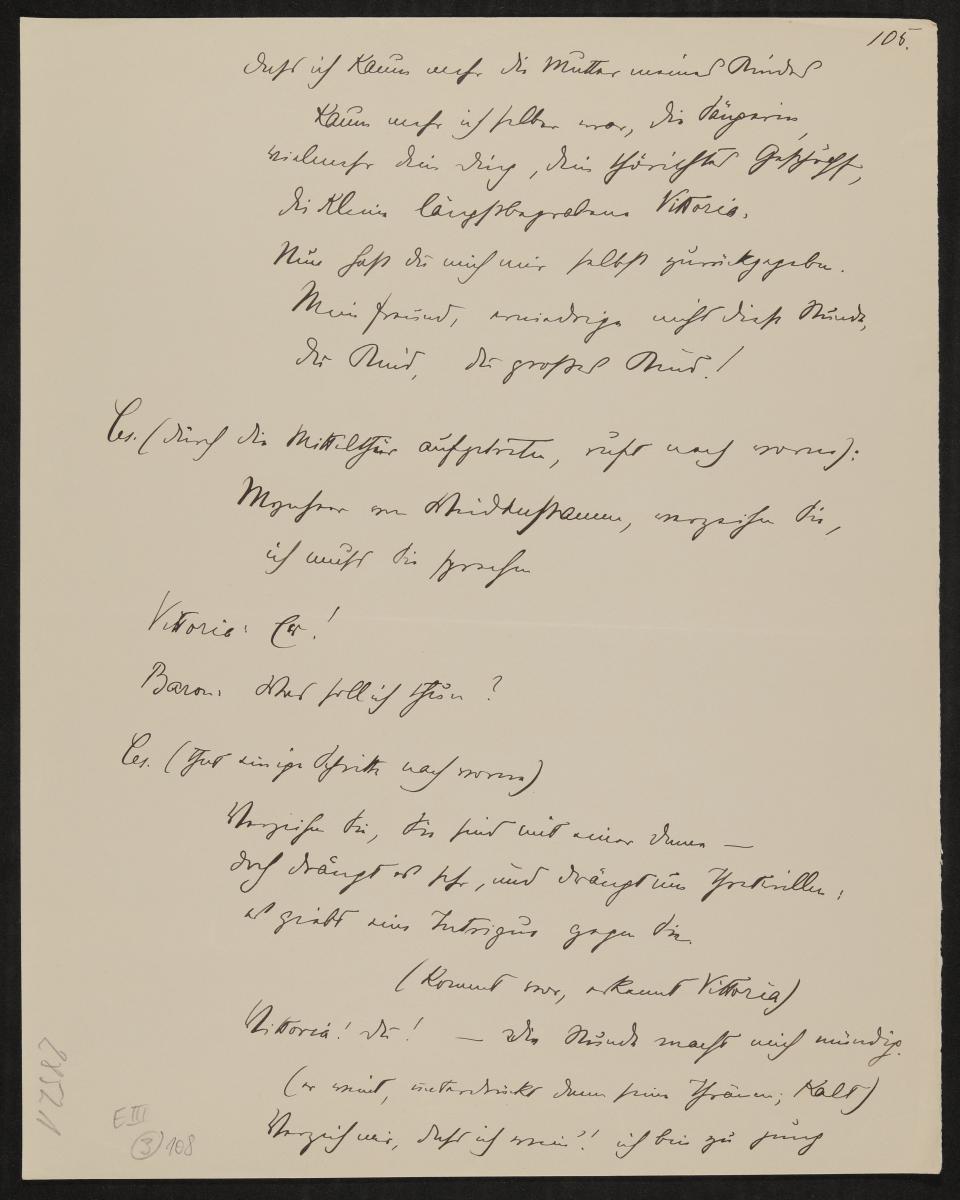 105.
dass ich kaum mehr die Mutter meines Kindes
kaum mehr ich selber war, die Sängerin,
vielmehr dein Ding, dein thörichtes Geschöpf,
die kleine längstbegrabene Vittoria.
Nun hast du mich mir selbst zurückgegeben.
Mein Freund, erniedrige nicht diese Stunde,
du Kind, du grosses Kind!
Ces. (durch die Mittelthür aufgetreten, ruft nach vorne):
Mynheer von Weidenstamm, verzeihen Sie,
ich muss Sie sprechen
Vittoria: Er!
Baron: Was soll ich thun?
Ces. (thut einige Schritte nach vorne)
Verzeihen Sie, Sie sind mit einer Dame —
doch drängt es sehr, und drängt um Ihretwillen:
es giebt eine Intrigue gegen Sie.
(kommt vor, erkennt Vittoria)
Vittoria! du! — Die Stunde macht mich mündig.
(er weint, unterdrückt dann seine Thränen; kalt)
Verzeih mir, dass ich wein'! ich bin zu jung
E III
(3) 108